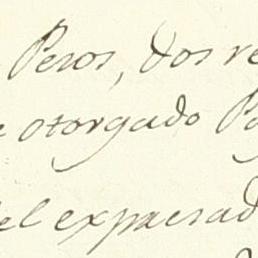 Pesos, dos re
e otorgado Pa
del expresad